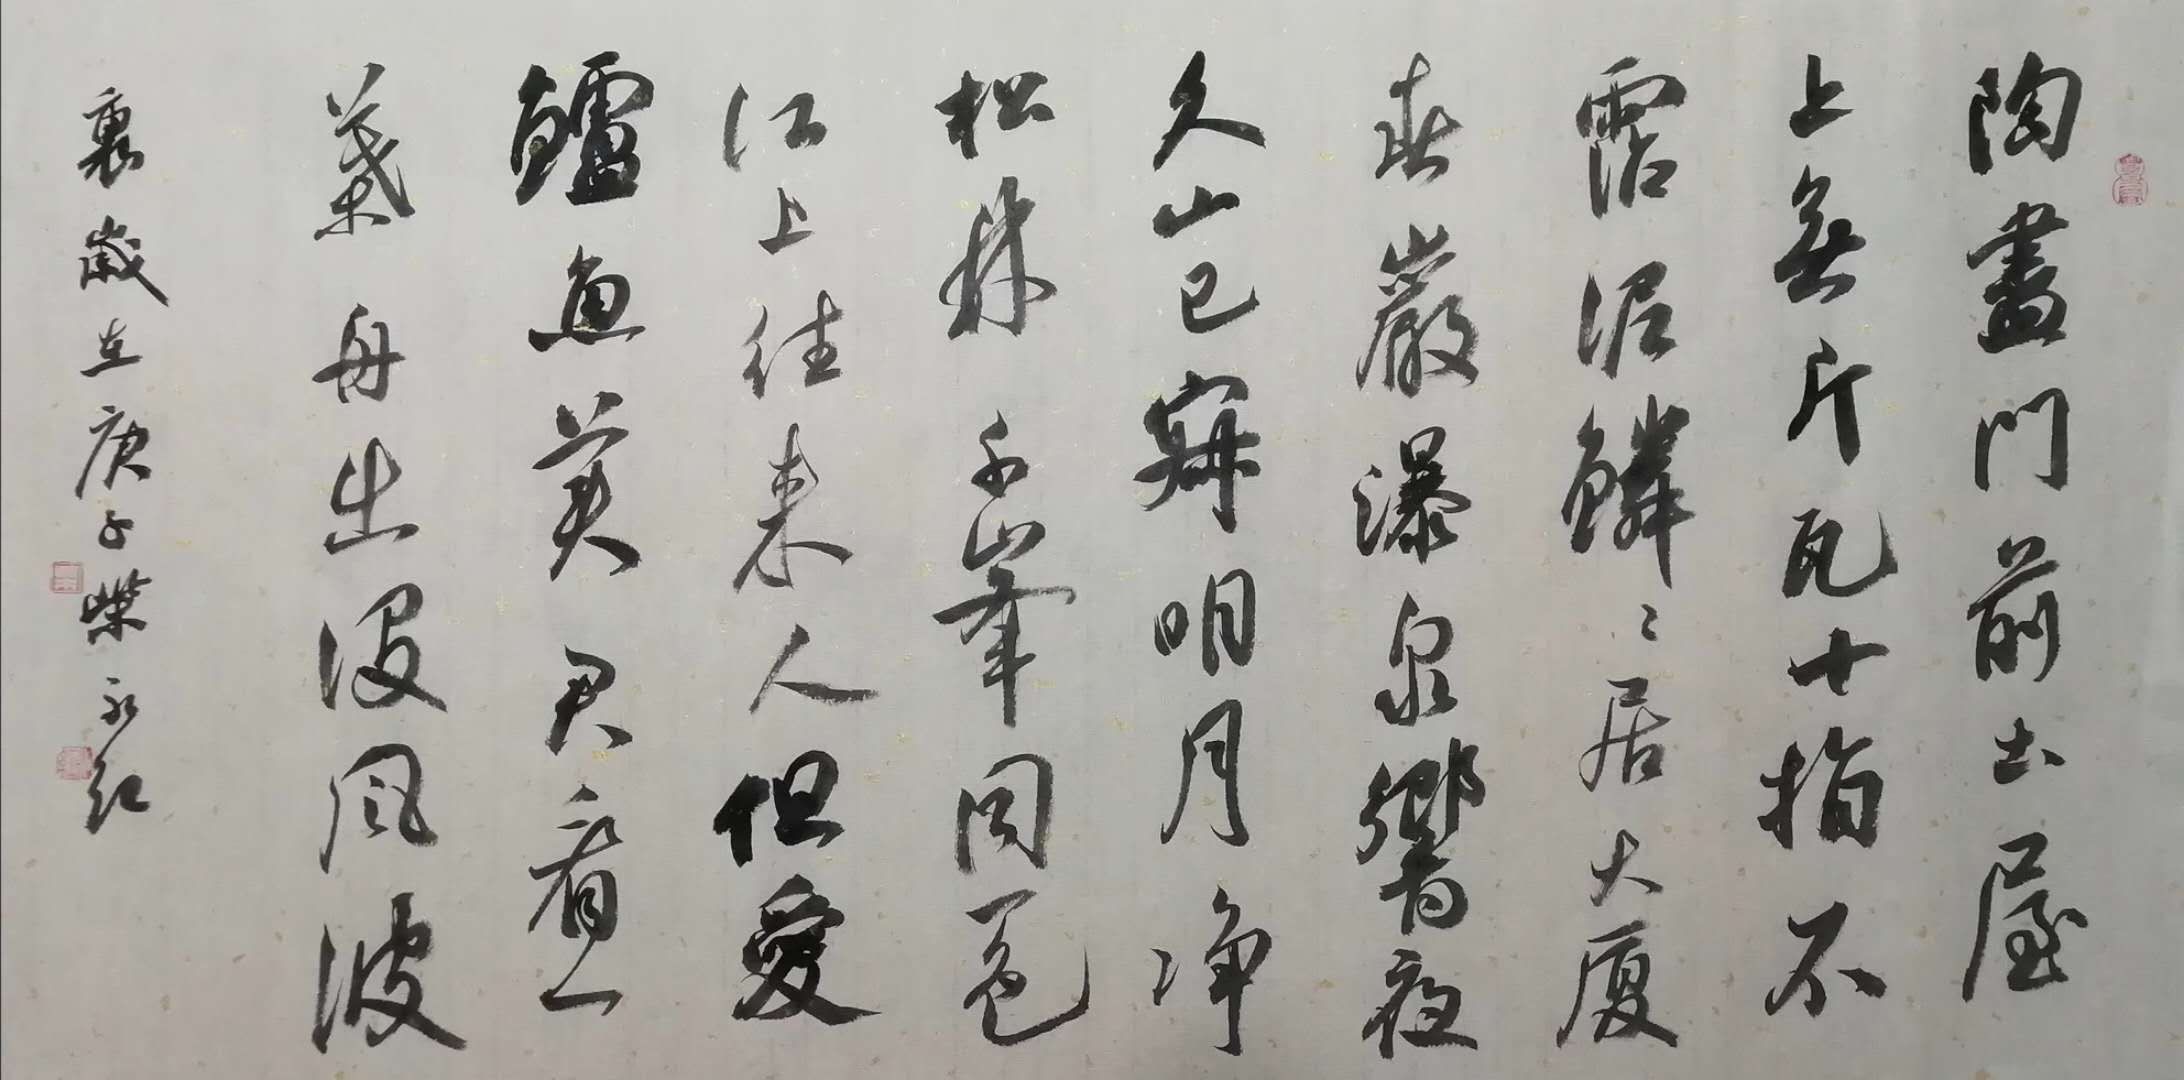 陶盡門前土屋
上無片瓦十指不
霑泥鱗〻居大厦
春巖瀑泉響夜
久山已寂明月净
松林千峯同色
江上往来人但愛
鱸魚美君看一
葉舟出没風波
裏歲在庚子柴永红